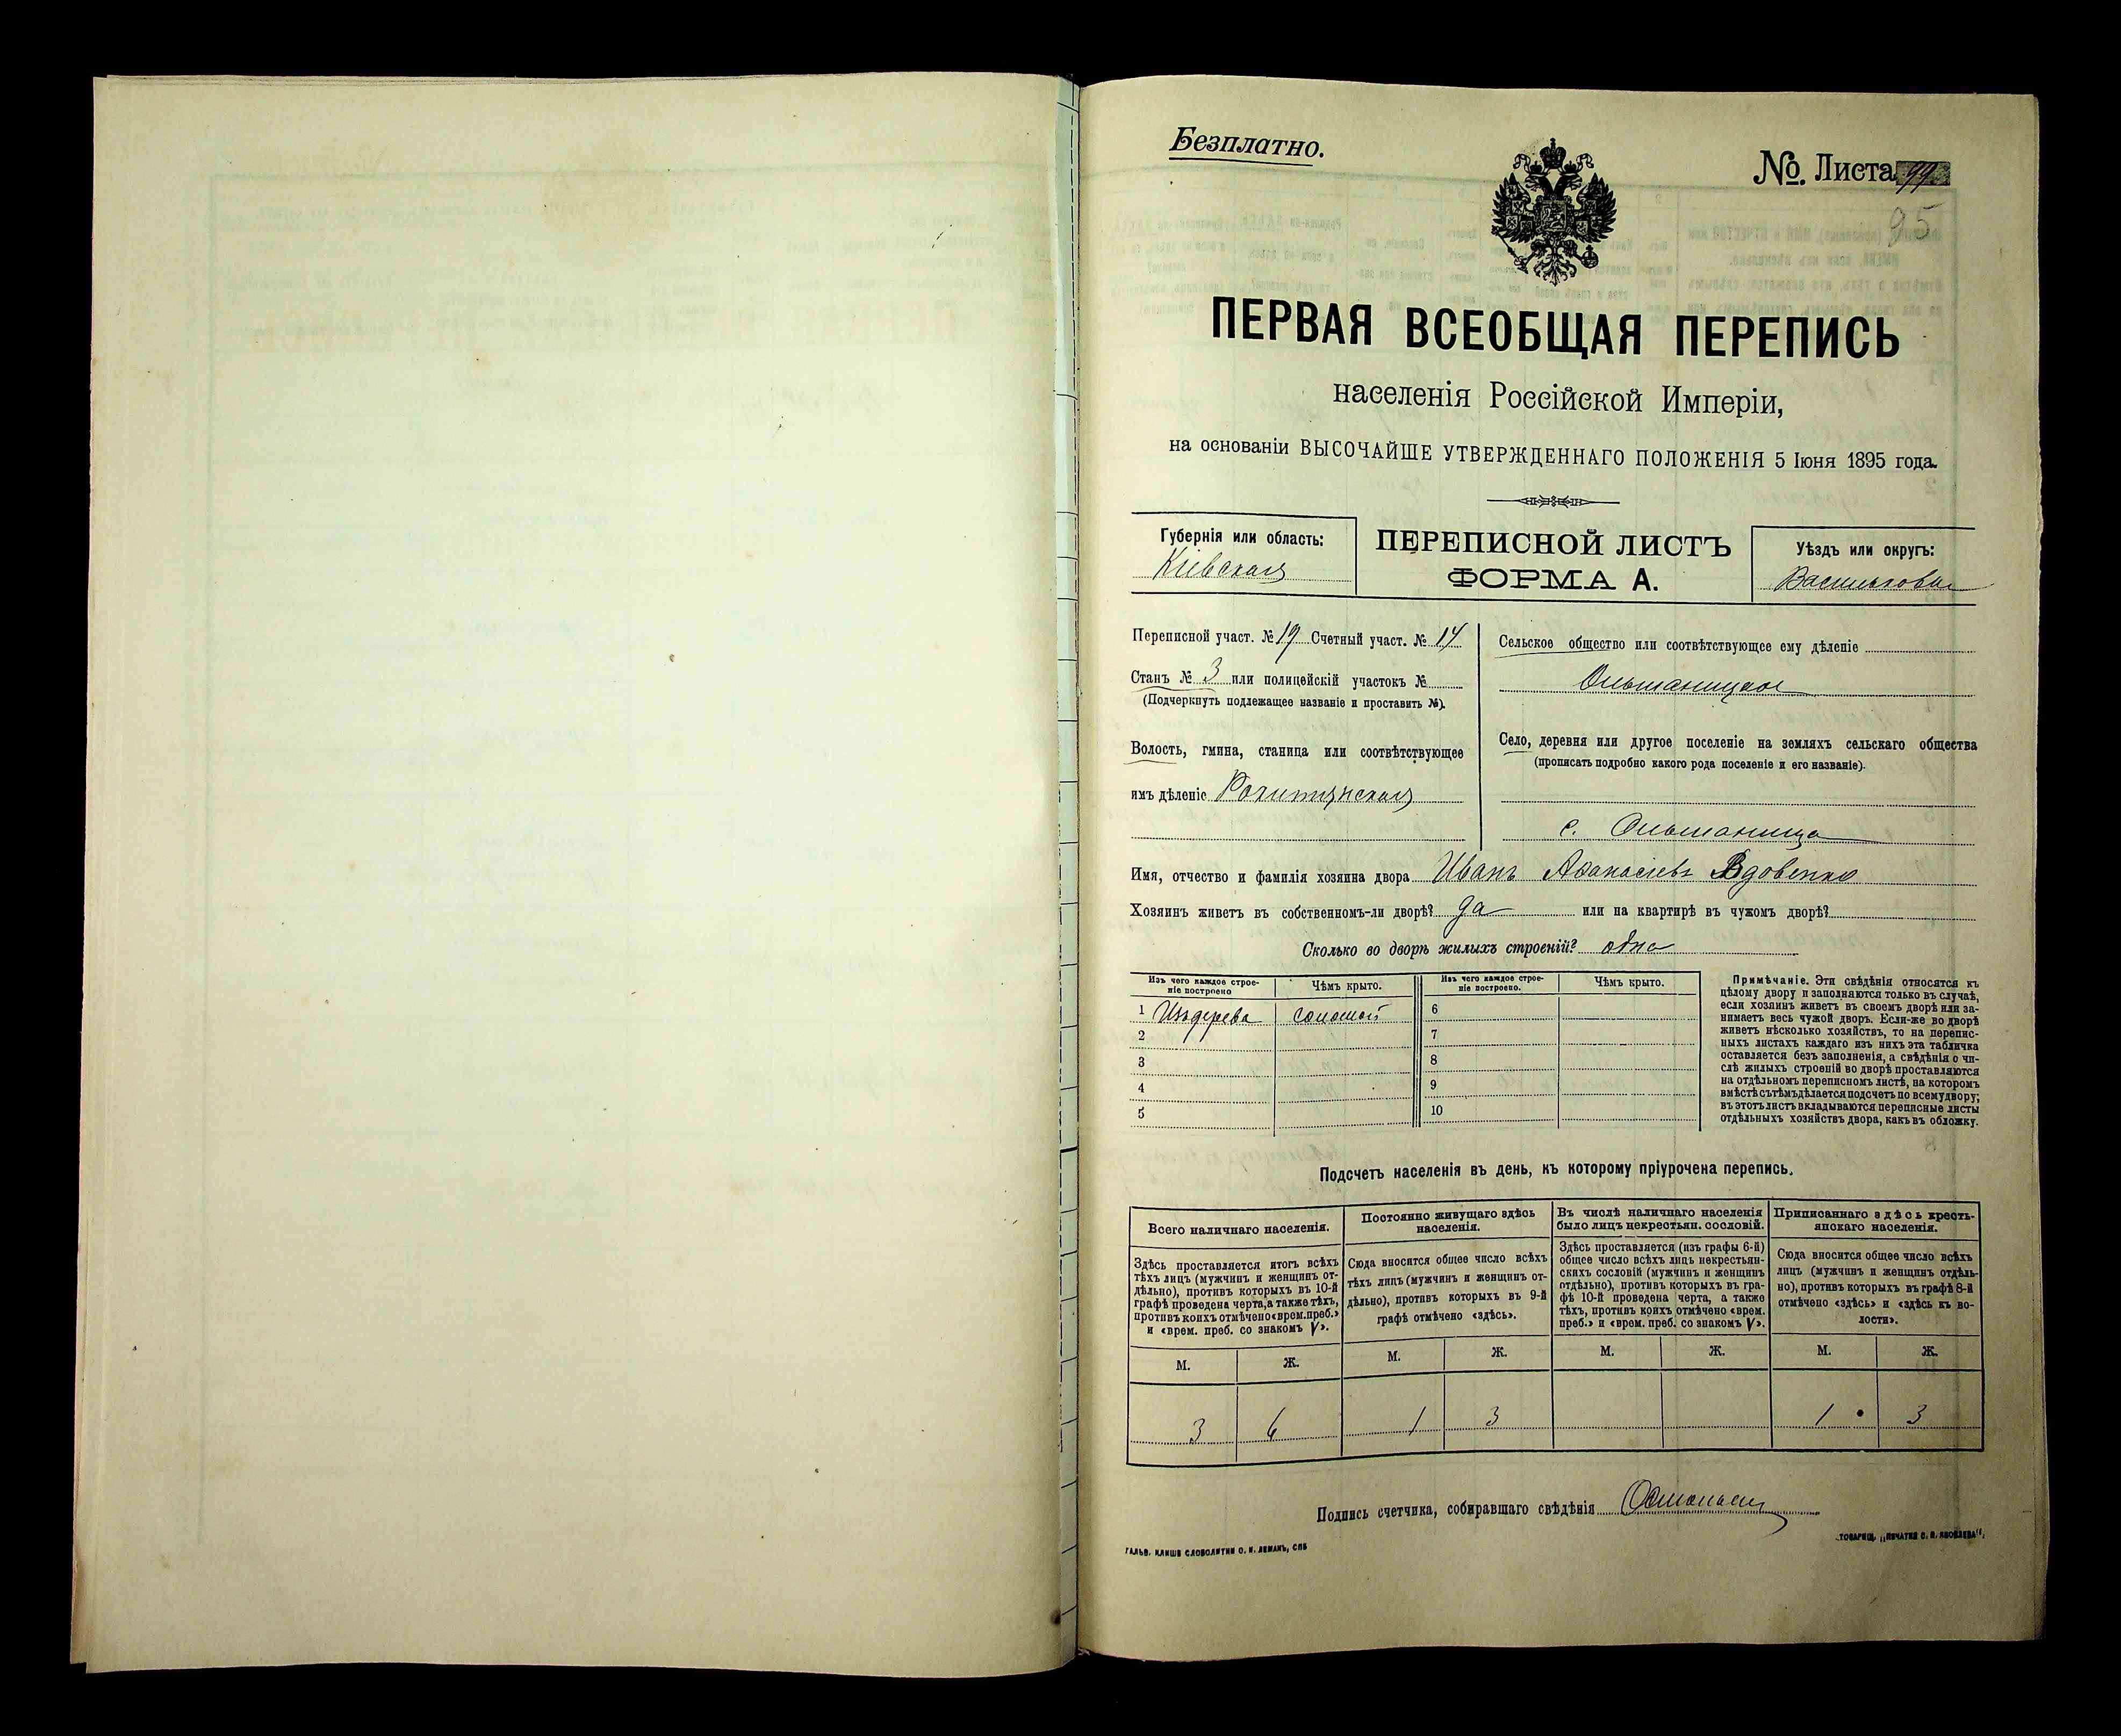 Безплатно.
№. Листа 99
95
ПЕРВАЯ ВСЕОБЩАЯ ПЕРЕПИСЬ
населенія Россійской Имперіи,
на основаніи ВЫСОЧАЙШЕ УТВЕРЖДЕННАГО ПОЛОЖЕНІЯ 5 Іюня 1895 года.
Губернія или область:
Кіевская
ПЕРЕПИСНОЙ ЛИСТЪ
ФОРМА А.
Уѣздъ или округъ:
Васильковскій
Переписной участ. № 19 Счетный участ. № 14
Станъ № 3 или полицейскій участокъ №
(Подчеркнуть подлежащее названіе и проставить №).
Волость, гмина, станица или соотвѣтствующее
имъ дѣленіе Рокитнянская
Сельское общество или соотвѣтствующее ему дѣленіе
Ольшаницкое
Село, деревня или другое поселеніе на земляхъ сельскаго общества
(прописать подробно какого рода поселеніе и его названіе).
с. Ольшаница
Имя, отчество и фамилія хозяина двора Иванъ Афанасіевъ Вдовенко
Хозяинъ живетъ въ собственномъ-ли дворѣ? да или на квартирѣ въ чужомъ дворѣ?
Сколько во дворѣ жилыхъ строеній? одно
Изъ чего каждое строе-
ніе построено
Чѣмъ крыто.
Изъ чего каждое строе-
ніе построено.
Чѣмъ крыто.
1 Изъ дерева соломой 6
2 7
3 8
4 9
5 10
Примѣчаніе. Эти свѣдѣнія относятся къ
цѣлому двору и заполняются только въ случаѣ,
если хозяинъ живетъ въ своемъ дворѣ или за-
нимаетъ весь чужой дворъ. Если-же во дворѣ
живетъ нѣсколько хозяйствъ, то на перепис-
ныхъ листахъ каждаго изъ нихъ эта табличка
оставляется безъ заполненія, а свѣдѣнія о чи-
слѣ жилыхъ строеній во дворѣ проставляются
на отдѣльномъ переписномъ листѣ, на которомъ
вмѣстѣ съ тѣмъ дѣлается подсчетъ по всему двору;
въ этотъ листъ вкладываются переписные листы
отдѣльныхъ хозяйствъ двора, какъ въ обложку.
Подсчетъ населенія въ день, къ которому пріурочена перепись.
Всего наличнаго населенія.
Здѣсь проставляется итогъ всѣхъ
тѣхъ лицъ (мужчинъ и женщинъ от-
дѣльно), противъ которыхъ въ 10-й
графѣ проведена черта, а также тѣхъ,
противъ коихъ отмѣчено «врем. преб.»
и «врем. преб. со знакомъ V».
Постоянно живущаго здѣсь
населенія.
Сюда вносится общее число всѣхъ
тѣхъ лицъ (мужчинъ и женщинъ от-
дѣльно), противъ которыхъ въ 9-й
графѣ отмѣчено «здѣсь».
Въ числѣ наличнаго населенія
было лицъ некрестьян. сословій.
Здѣсь проставляется (изъ графы 6-й)
общее число всѣхъ лицъ некрестьян-
скихъ сословій (мужчинъ и женщинъ
отдѣльно), противъ которыхъ въ гра-
фѣ 10-й проведена черта, а также
тѣхъ, противъ коихъ отмѣчено «врем.
преб.» и «врем. преб. со знакомъ V».
Приписаннаго здѣсь кресть-
янскаго населенія.
Сюда вносится общее число всѣхъ
лицъ (мужчинъ и женщинъ отдѣль-
но), противъ которыхъ въ графѣ 8-й
отмѣчено «здѣсь» и «здѣсь къ во-
лости».
М. Ж. М. Ж. М. Ж. М. Ж.
3 6 1 3 1 3
Подпись счетчика, собиравшаго свѣдѣнія
ГАЛЬВ. КЛИШЕ СЛОВОЛИТНИ О. И. ЛЕМАНЪ, СПБ
ТОВАРИЩ. „ПЕЧАТНЯ С. П. ЯКОВЛЕВА".